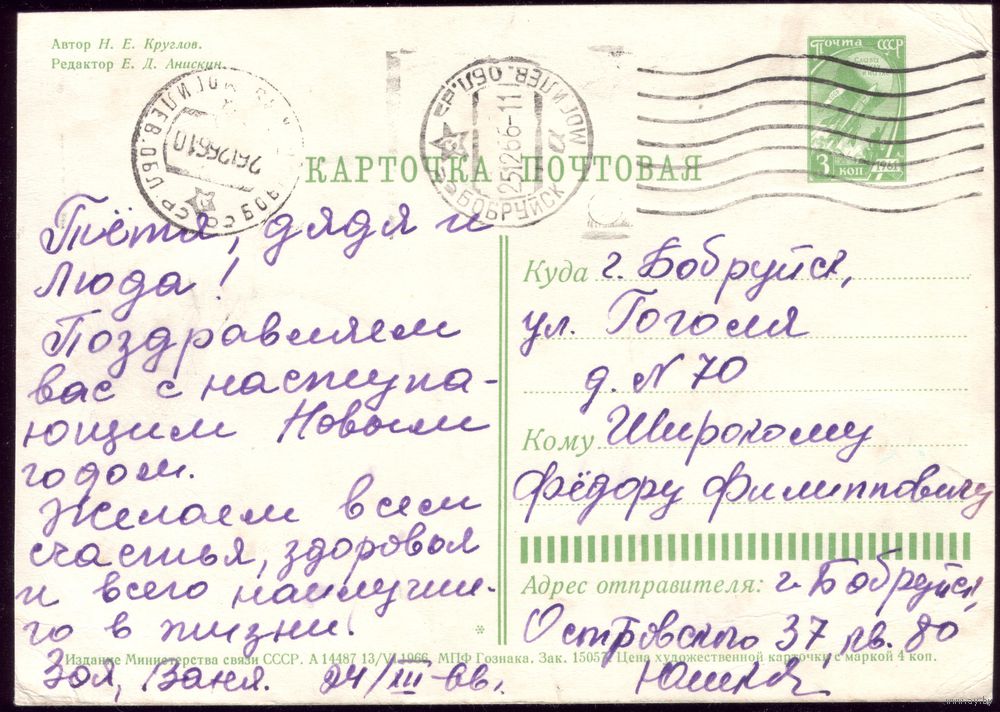 Автор Н. Е. Круглов.
Редактор Е. Д. Анискин.
МОГИЛЕВ. ОБЛ.
26126610
БОБ
МОГИЛЕВ. ОБЛ.
251266-11
а
БОБРУЙСК
Почта СССР
3 коп
1961
КАРТОЧКА ПОЧТОВАЯ
Тётя, дядя и
Люда!
Поздравляем
вас с наступа-
ющим Новым
годом.
Желаем всем
счастья, здоровья
и всего наилучше-
го в жизни.
Зоя, Ваня. 24/XII-66г.
Куда г. Бобруйск,
ул. Гоголя
д. N 70
Кому Широкому
Фёдору Филипповичу
Адрес отправителя: г. Бобруйск,
Островского 37 кв. 80
*
Издание Министерства связи СССР. А 14487 13/VI 1966. МПФ Гознака. Зак. 15057. Цена художественной карточки с маркой 4 коп.